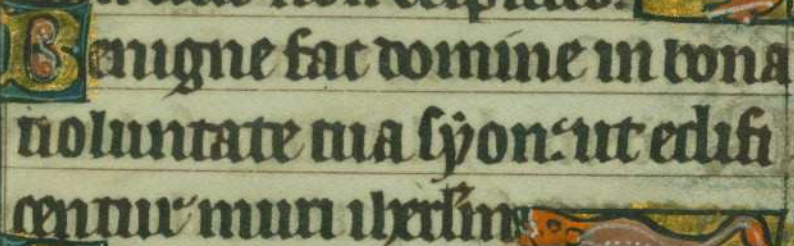 non despicies.
Benigne fac domine in bona
uoluntate tua syon: ut edifi
centur muri iherlm